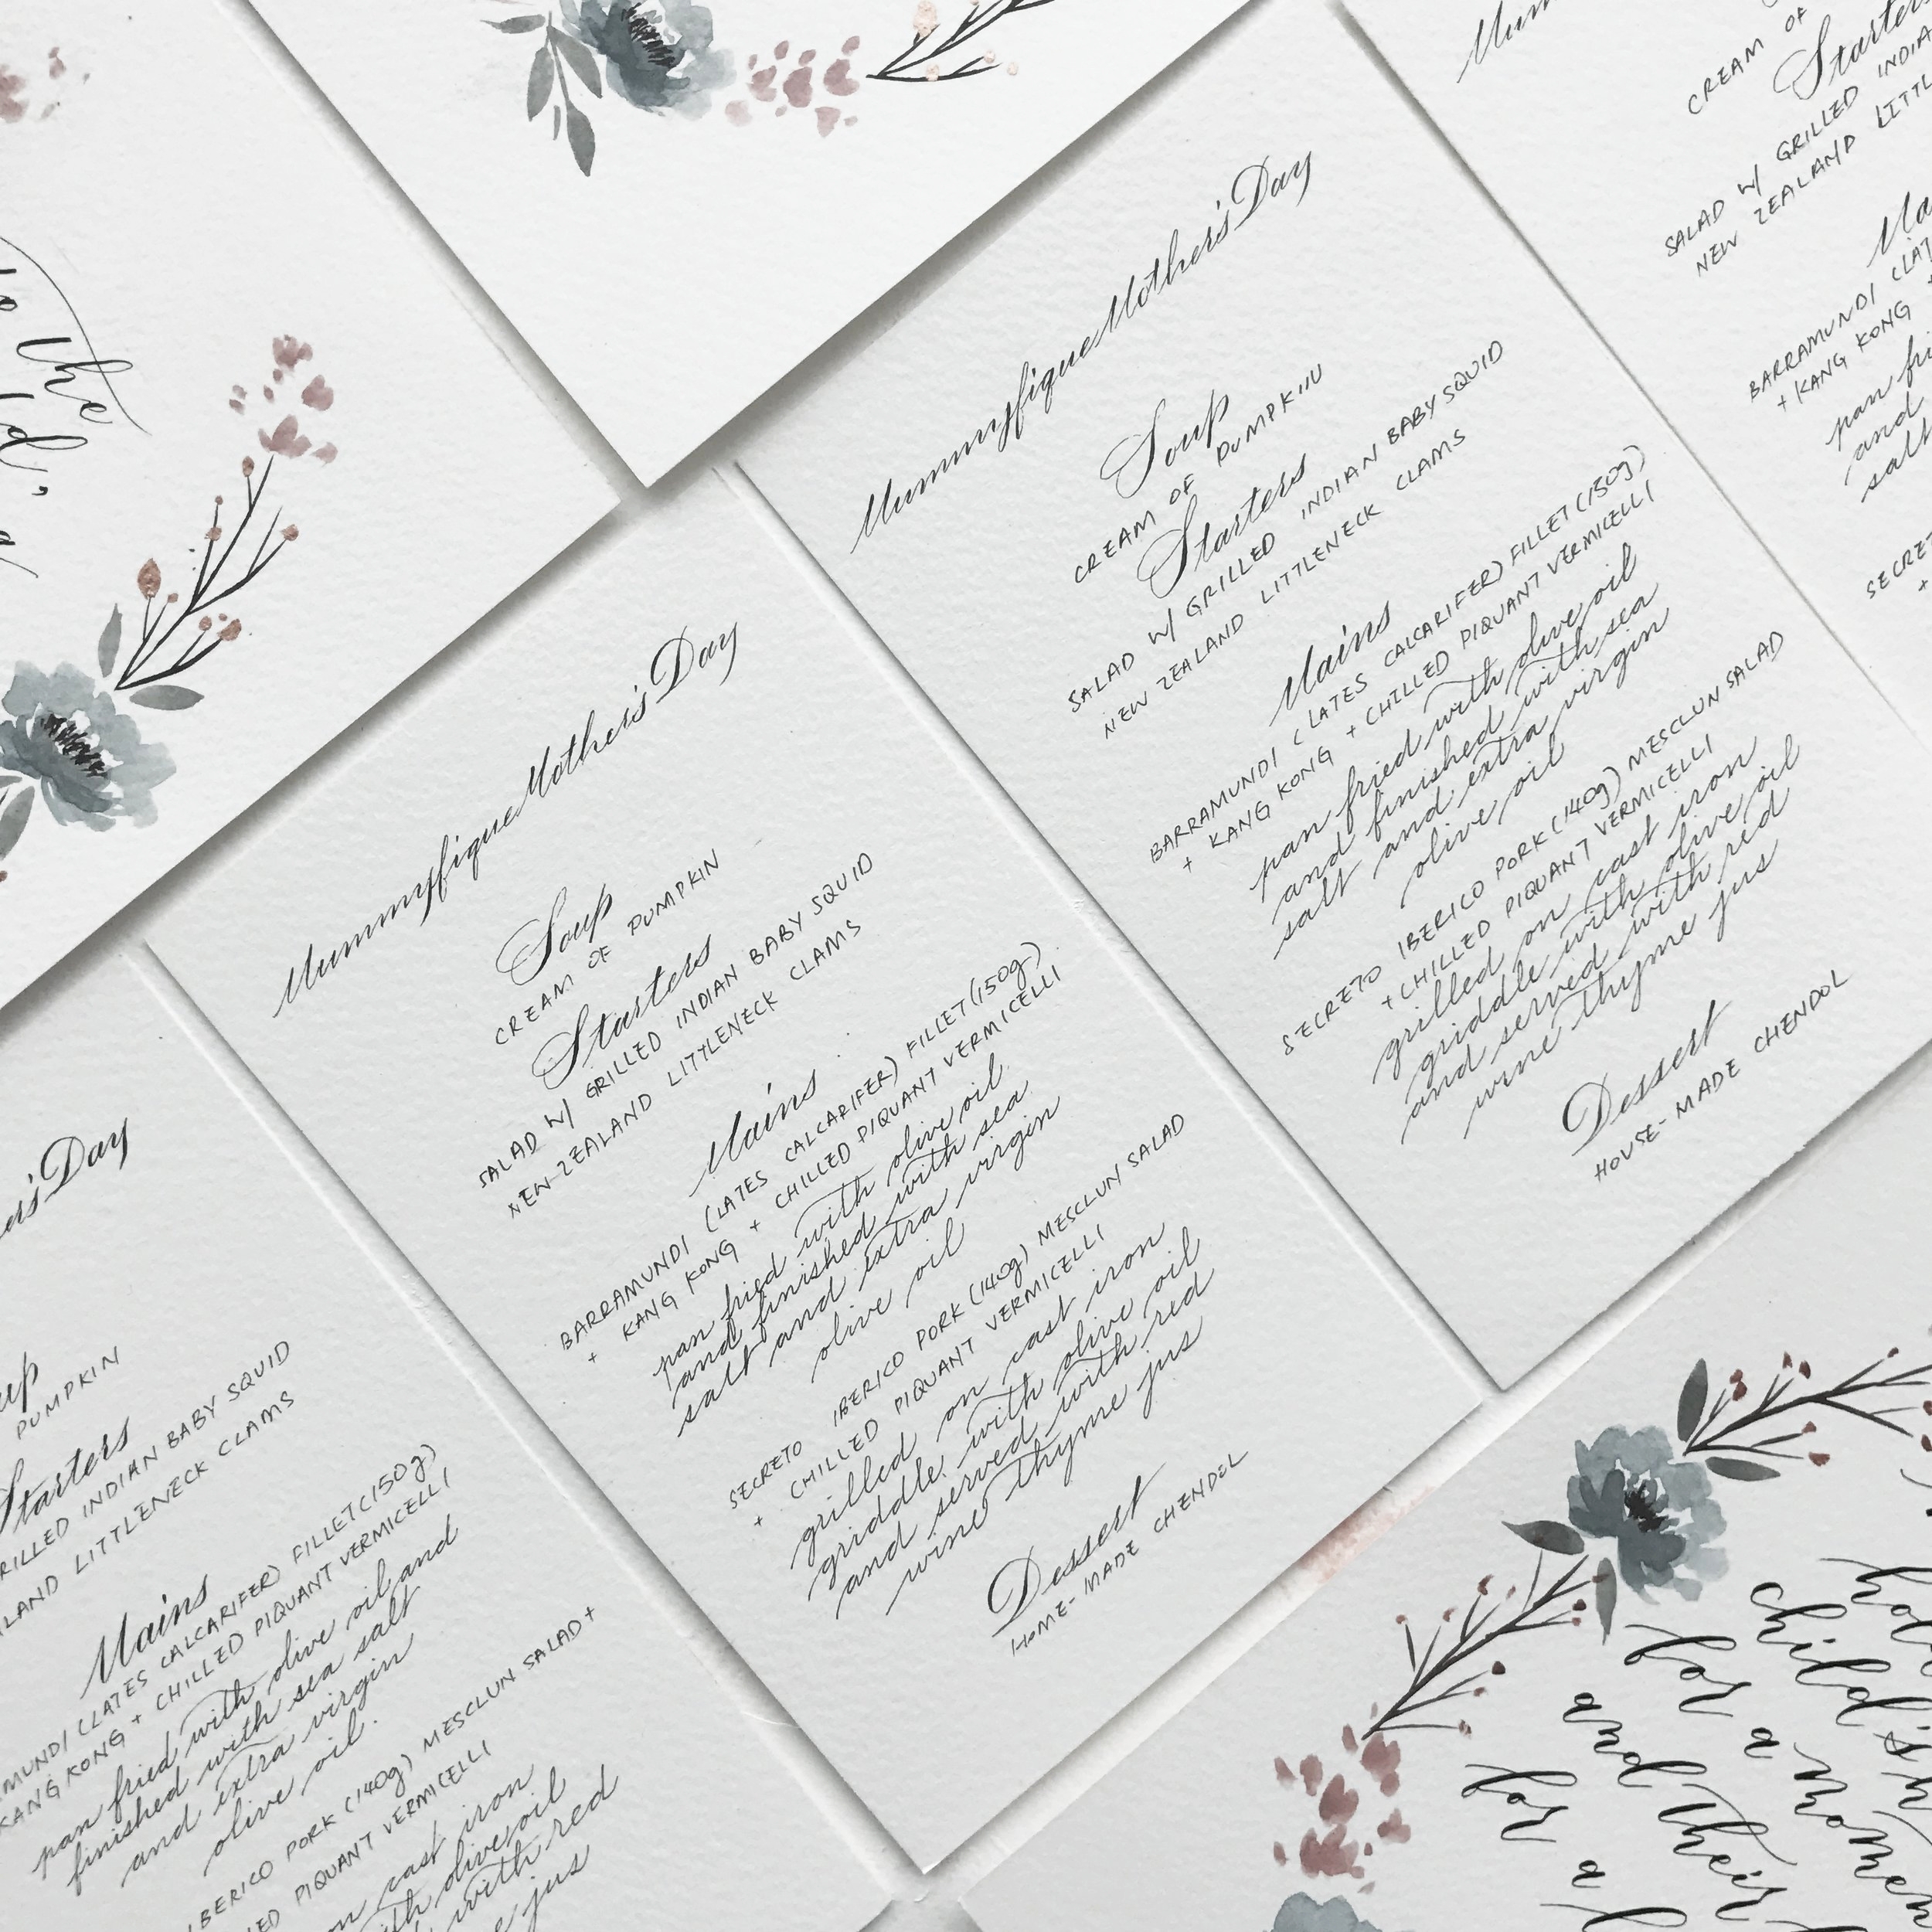 the
Mummyfique Mother's Day
Soup
CREAM OF PUMPKIN
Starters
SALAD W/ GRILLED INDIAN BABY SQUID
NEW ZEALAND LITTLENECK CLAMS
Mains
BARRAMUNDI (LATES CALCARIFER) FILLET (150g)
+ KANG KONG + CHILLED PIQUANT VERMICELLI
pan fried with olive oil
and finished with sea
salt and extra virgin
olive oil
SECRETO IBERICO PORK (140g) MESCLUN SALAD
+ CHILLED PIQUANT VERMICELLI
grilled on cast iron
griddle with olive oil
and served with red
wine thyme jus
Dessert
HOME-MADE CHENDOL
Mummyfique Mother's Day
Soup
CREAM OF PUMPKIN
Starters
SALAD W/ GRILLED INDIAN BABY SQUID
NEW ZEALAND LITTLENECK CLAMS
Mains
BARRAMUNDI (LATES CALCARIFER) FILLET (150g)
+ KANG KONG + CHILLED PIQUANT VERMICELLI
pan fried with olive oil
and finished with sea
salt and extra virgin
olive oil
SECRETO IBERICO PORK (140g) MESCLUN SALAD
+ CHILLED PIQUANT VERMICELLI
grilled on cast iron
griddle with olive oil
and served with red
wine thyme jus
Dessert
HOUSE-MADE CHENDOL
CREAM OF
Starters
SALAD W/ GRILLED
NEW ZEALAND
BARRAMUNDI
+ KANG KONG
pan
and
salt
Day
PUMPKIN
Starters
INDIAN BABY SQUID
LITTLENECK CLAMS
Mains
(LATES CALCARIFER) FILLET (150g)
KANG KONG + CHILLED PIQUANT VERMICELLI
pan fried with olive oil and
finished with sea salt
and extra virgin
olive oil.
IBERICO PORK (140g) MESCLUN SALAD +
PIQUANT VERMICELLI
cast iron
olive oil
with red
jus
child's
for a
and their
for a